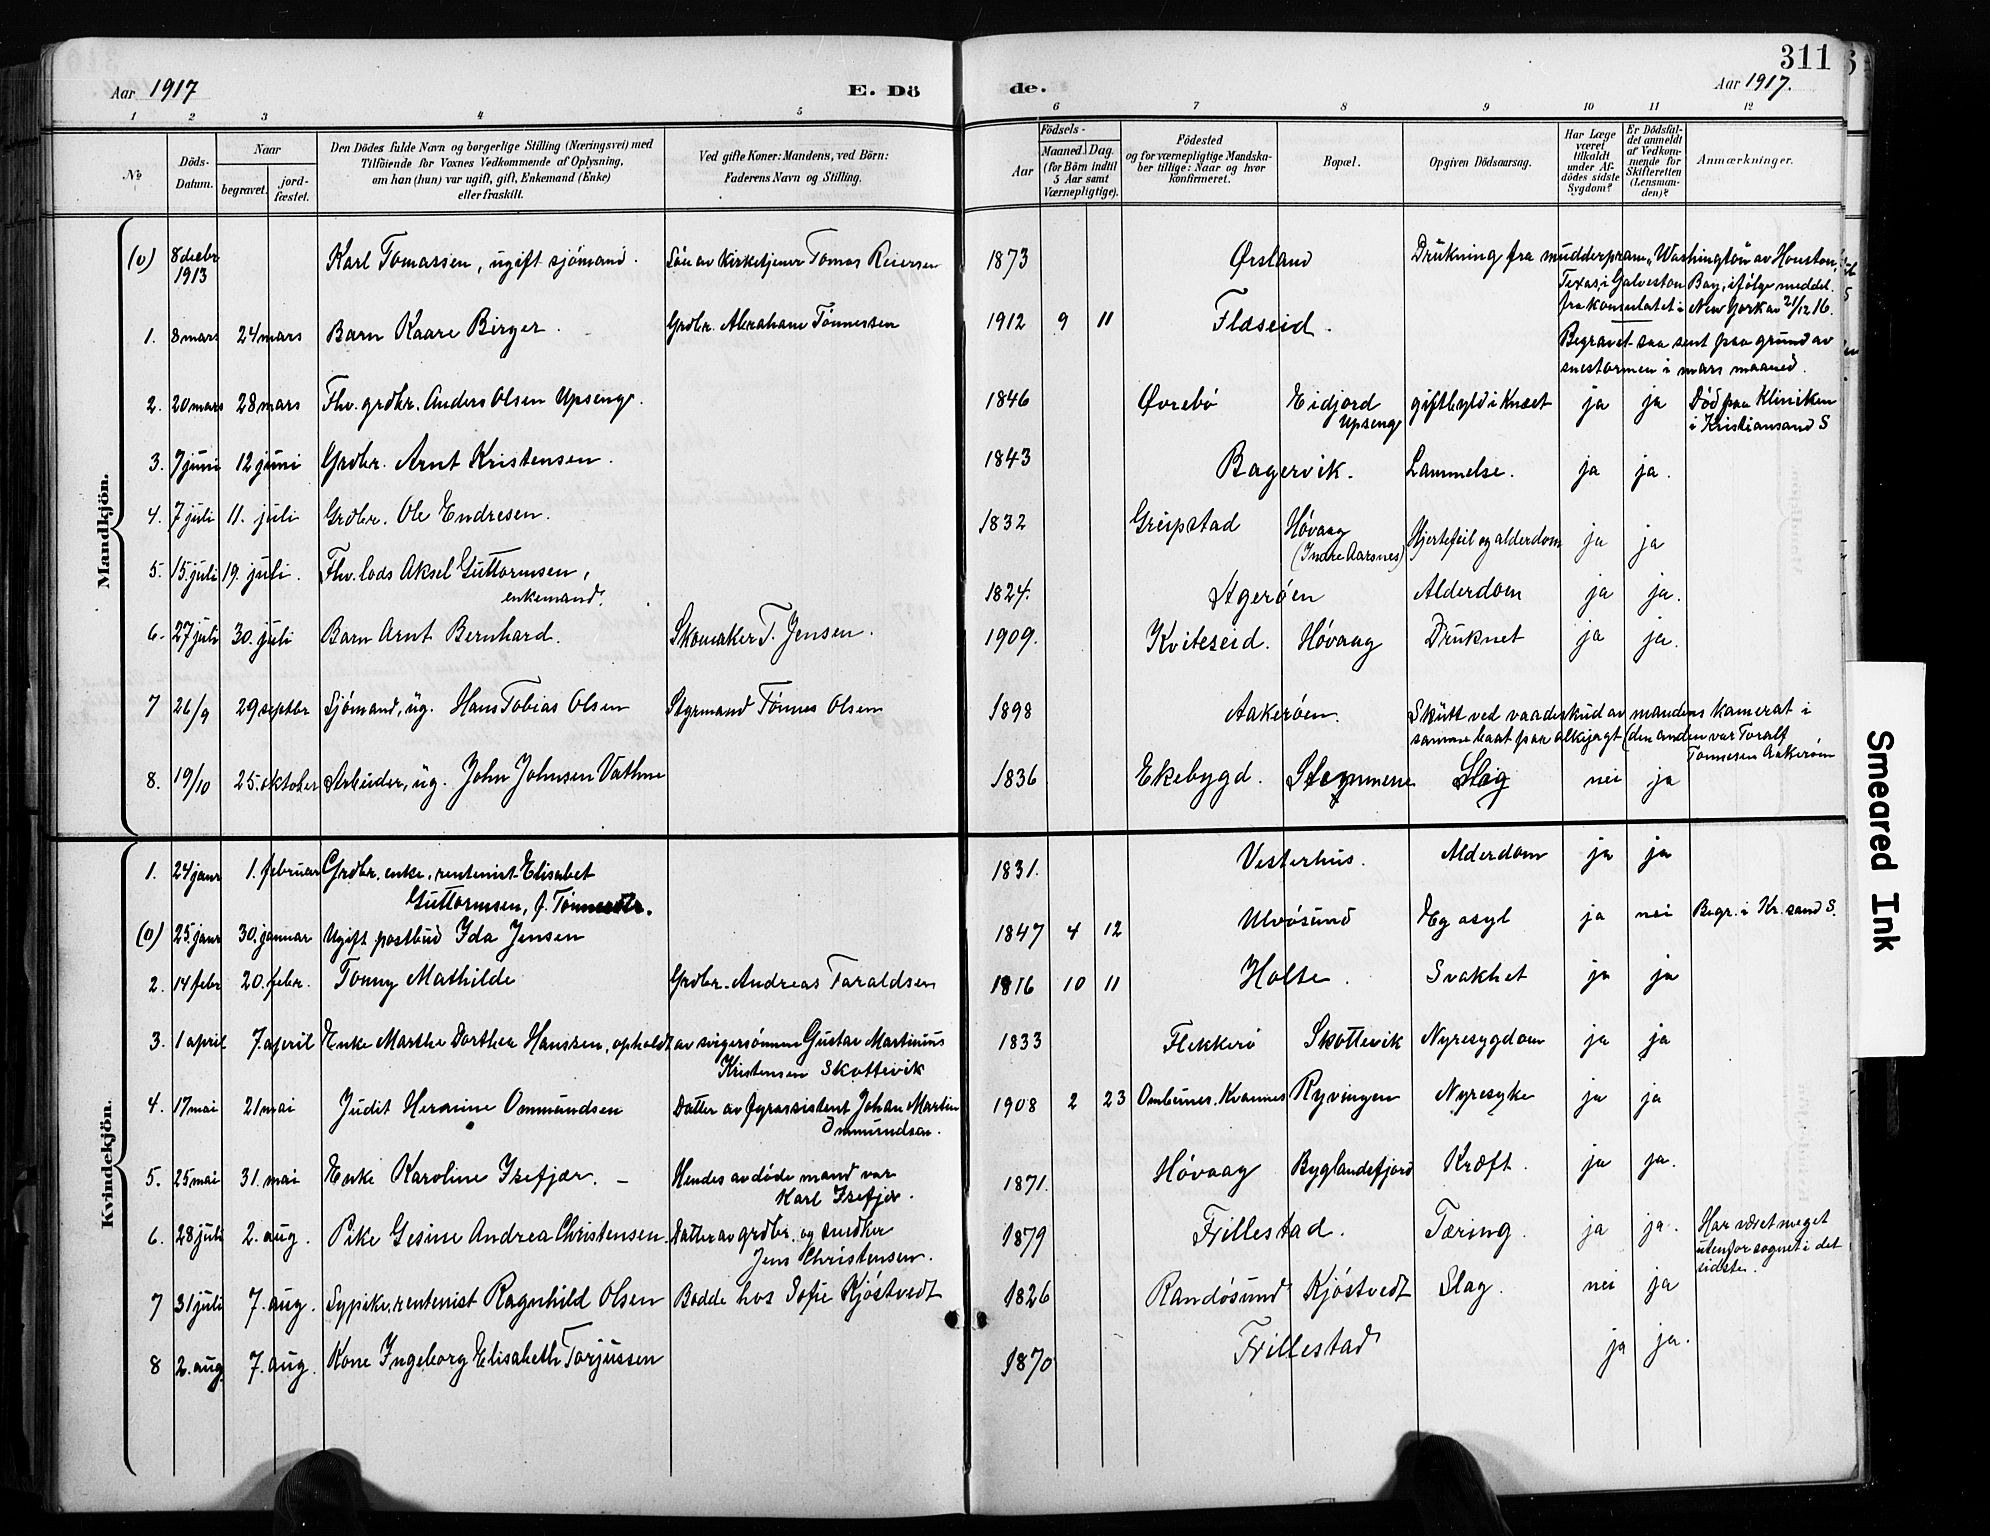 311
Aar 1917
E. Dö
de.
Aar 1917.
1 2 3 4 5 6 7 8 9 10 11 12
No
Döds-
Datum.
Naar
begravet.
jord-
fæstet.
Den Dödes fulde Navn og borgerlige Stilling (Næringsvei) med
Tilföiende for Voxnes Vedkommende af Oplysning,
om han (hun) var ugift, gift, Enkemand (Enke)
eller fraskilt.
Ved gifte Koner: Mandens, ved Börn:
Faderens Navn og Stilling.
Födsels-
Aar
Maaned.
Dag.
(for Börn indtil
5 Aar samt
Værnepligtige).
Födested
og for værnepligtige Mandska-
ber tillige: Naar og hvor
konfirmeret.
Bopæl.
Opgiven Dödsaarsag.
Har Læge
været
tilkaldt
under Af-
dödes sidste
Sygdom?
Er Dödsfal-
det anmeldt
af Vedkom-
mende for
Skifteretten
(Lensman-
den)?
Anmærkninger.
Mandkjön.
(0) 8 decbr 1913 Karl Tomassen, ugift sjömand. Sön av kirketjener Tomas Reiersen 1873 Örsland Drukning fra mudderpram "Washington" av Houston,
Texas, i Galveston Bay, ifölge meddel.
fra konsulatet i New York av 21/12 16.
1. 8 mars 24 mars Barn Kaare Birger. Grdbr. Abraham Tönnessen 1912 9 11 Flæseid.
Begravet saa sent paa grund av
snestormen i mars maaned.
2. 20 mars 28 mars Fhv. grdbr. Anders Olsen Upsenge. 1846 Övrebö Eidjord Upsenge giftbyld i Knæet ja ja Död paa Kliniken
i Kristiansand S
3. 7 juni 12 juni Grdbr. Arnt Kristensen. 1843 Bagervik. Lammelse. ja ja.
4. 7 juli 11. juli Grdbr. Ole Endresen. 1832 Greipstad Hövaag (Indre Aarsnes) Hjertefeil og alderdom ja ja
5. 15. juli 19. juli. Fhv. lods Aksel Guttormsen,
enkemand. 1824. Ageröen Alderdom ja ja.
6. 27 juli 30. juli Barn Arnt Bernhard. Skomaker T. Jensen. 1909. Kviteseid. Hövaag Druknet ja ja.
7 26/9 29 septbr Sjömand, ug. Hans Tobias Olsen Styrmand Tönnes Olsen 1898 Aakeröen. Skutt ved vaadeskud av mandens kamerat i
samme baat paa alkejagt (den anden var Toralf
Tönnesen Aakeröen
8. 19/10 25. oktober Arbeider, ug. John Johnsen Vathne 1836 Ekebygd. Slag nei ja
Kvindekjön.
1. 24 janr 1. februar Grdbr. enke, rentenist Elisabet
Guttormsen, f. Tönnesdtr. 1831. Vesterhus. Alderdom ja ja
(0) 25. janr 30. januar Ugift postbud Ida Jensen 1847 4 12 Ulvösund Eg asyl ja nei Begr. i Kr.sand S.
2. 14 febr 20. febr. Tonny Mathilde Grdbr. Andreas Taraldsen 1816 10 11 Holte. Svakhet ja ja
3. 1 april 7. april Enke Marthe Dorthea Hanssen, opholdt av svigersönnen Gustav Martinius
Kristensen Skottevik 1833 Flekkerö Skottevik Nyresygdom ja ja
4. 17 mai 21 mai Judit Hermine Ommundsen Datter av fyrassistent Johan Martin
Ommundsen. 1908 2 23 Ombernes. Kvannes Ryvingen Nyresyke ja ja
5. 25 mai 31. mai Enke Karoline Isefjær. – Hendes avdöde mand var
Karl Isefjær. 1871. Hövaag Byglandsfjord Kræft. ja ja.
6. 28 juli 2. aug. Pike Gesine Andrea Christensen. Datter av grdbr. og snedker
Jens Christensen. 1879 Frillestad. Tæring. ja ja. Har været meget
utenfor sognet i det
sidste.
7 31 juli 7. aug. Sypike, rentenist Ragnhild Olsen Bodde hos Sofie Kjöstvedt 1826 Randösund Kjöstvedt Slag. nei ja
8 2. aug 7. aug. Kone Ingeborg Elisabeth Torjussen 1870 Frillestad ja ja.
Smeared Ink